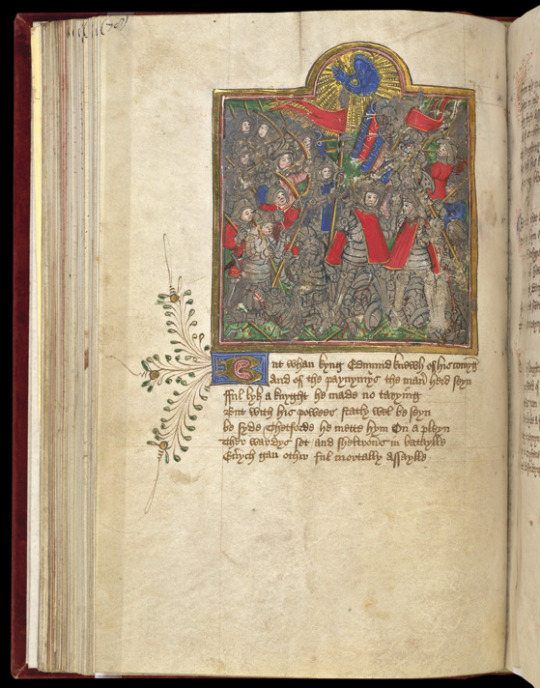 But whan kyng Edmund knewh of his comyng
and of the paynymys the maner herd seyn
fful lyk a knyght he made no taryyng
But with his poweer statly wel be seyn
be syde Thetforde he mette hym On a pleyn
Ther wardys set and sheltrons in bataylle
Euych gan other ful mortally assaylle